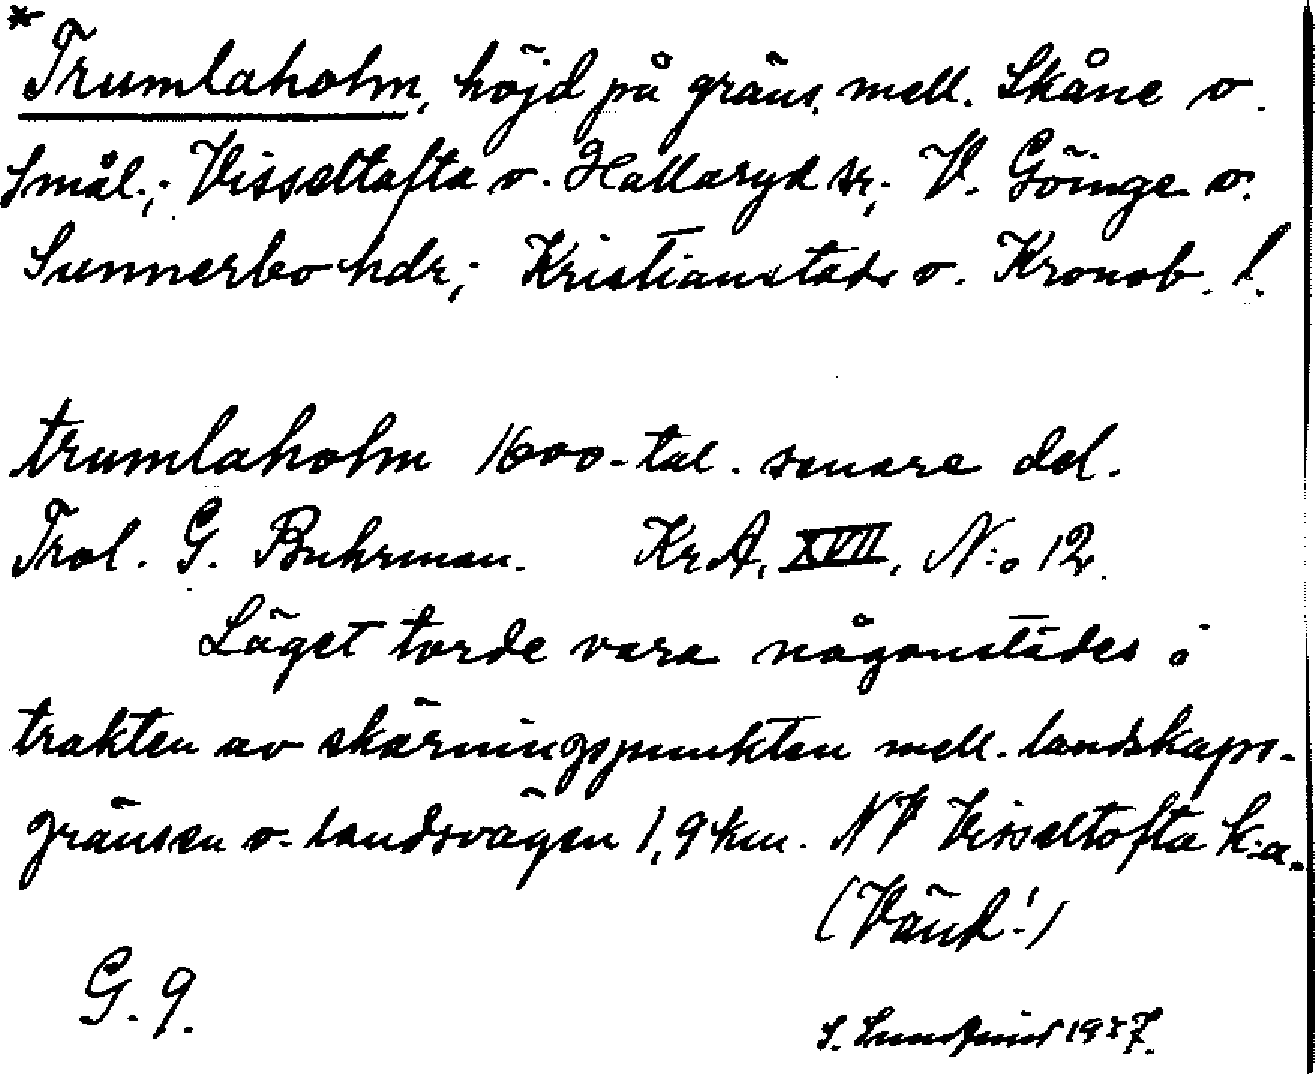 * Trumlaholm, höjd på gräns. mell. Skåne o.
Smål.; Visseltofta o. Hallaryd sr.; V. Göinge o.
Sunnerbo hdr.; Kristianstads o. Kronob. l.
trumlaholm 1600-tal. senare del.
Trol. G. Buhrman. KrA, XVII, N:o 12.
Läget torde vara någonstädes i
trakten av skärningspunkten mell. landskaps-
gränsen o. landsvägen 1,9 km. NV Visseltofta k:a.
(Vänd!)
G. 9.
S.